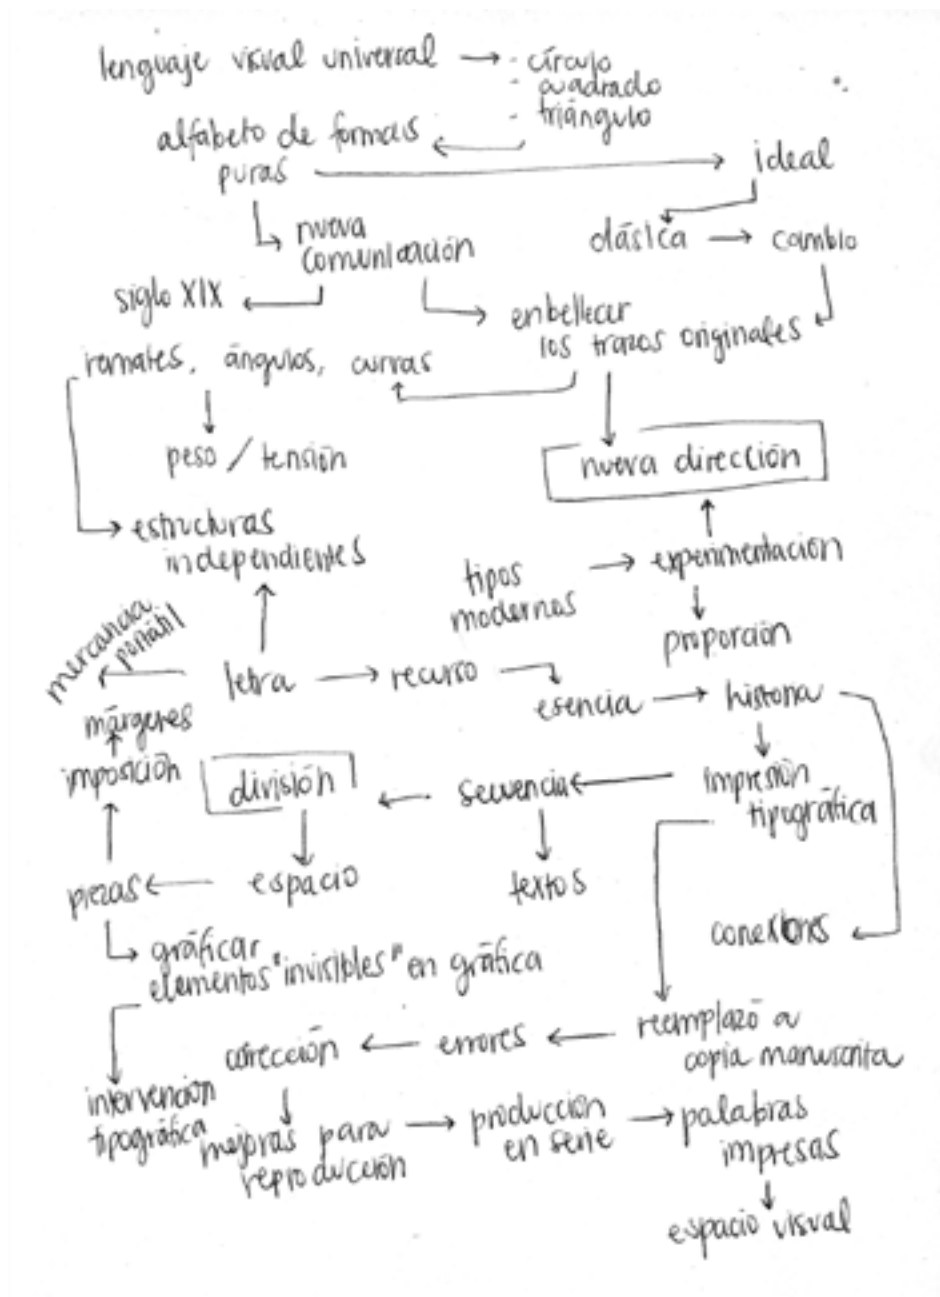 lenguaje visual universal → - círculo
- cuadrado
- triángulo
alfabeto de formas
puras → ideal
nueva
comunicación
clásica → cambio
siglo XIX ←
enbellecer
los trazos originales
ramates, ángulos, curvas
peso / tensión
nueva dirección
estructuras
independientes
tipos
modernos → experimentación
proporción
mercancía
portátil
letra → recurso
esencia → historia
márgenes
imposición
división ← secuencia ← impresión
tipográfica
piezas ← espacio
textos
conexiones
gráficar
elementos "invisibles" en gráfica
reemplazó a
copia manuscrita
corección ← errores ←
intervención
tipográfica
mejoras para
reproducción → producción
en serie → palabras
impresas
espacio visual